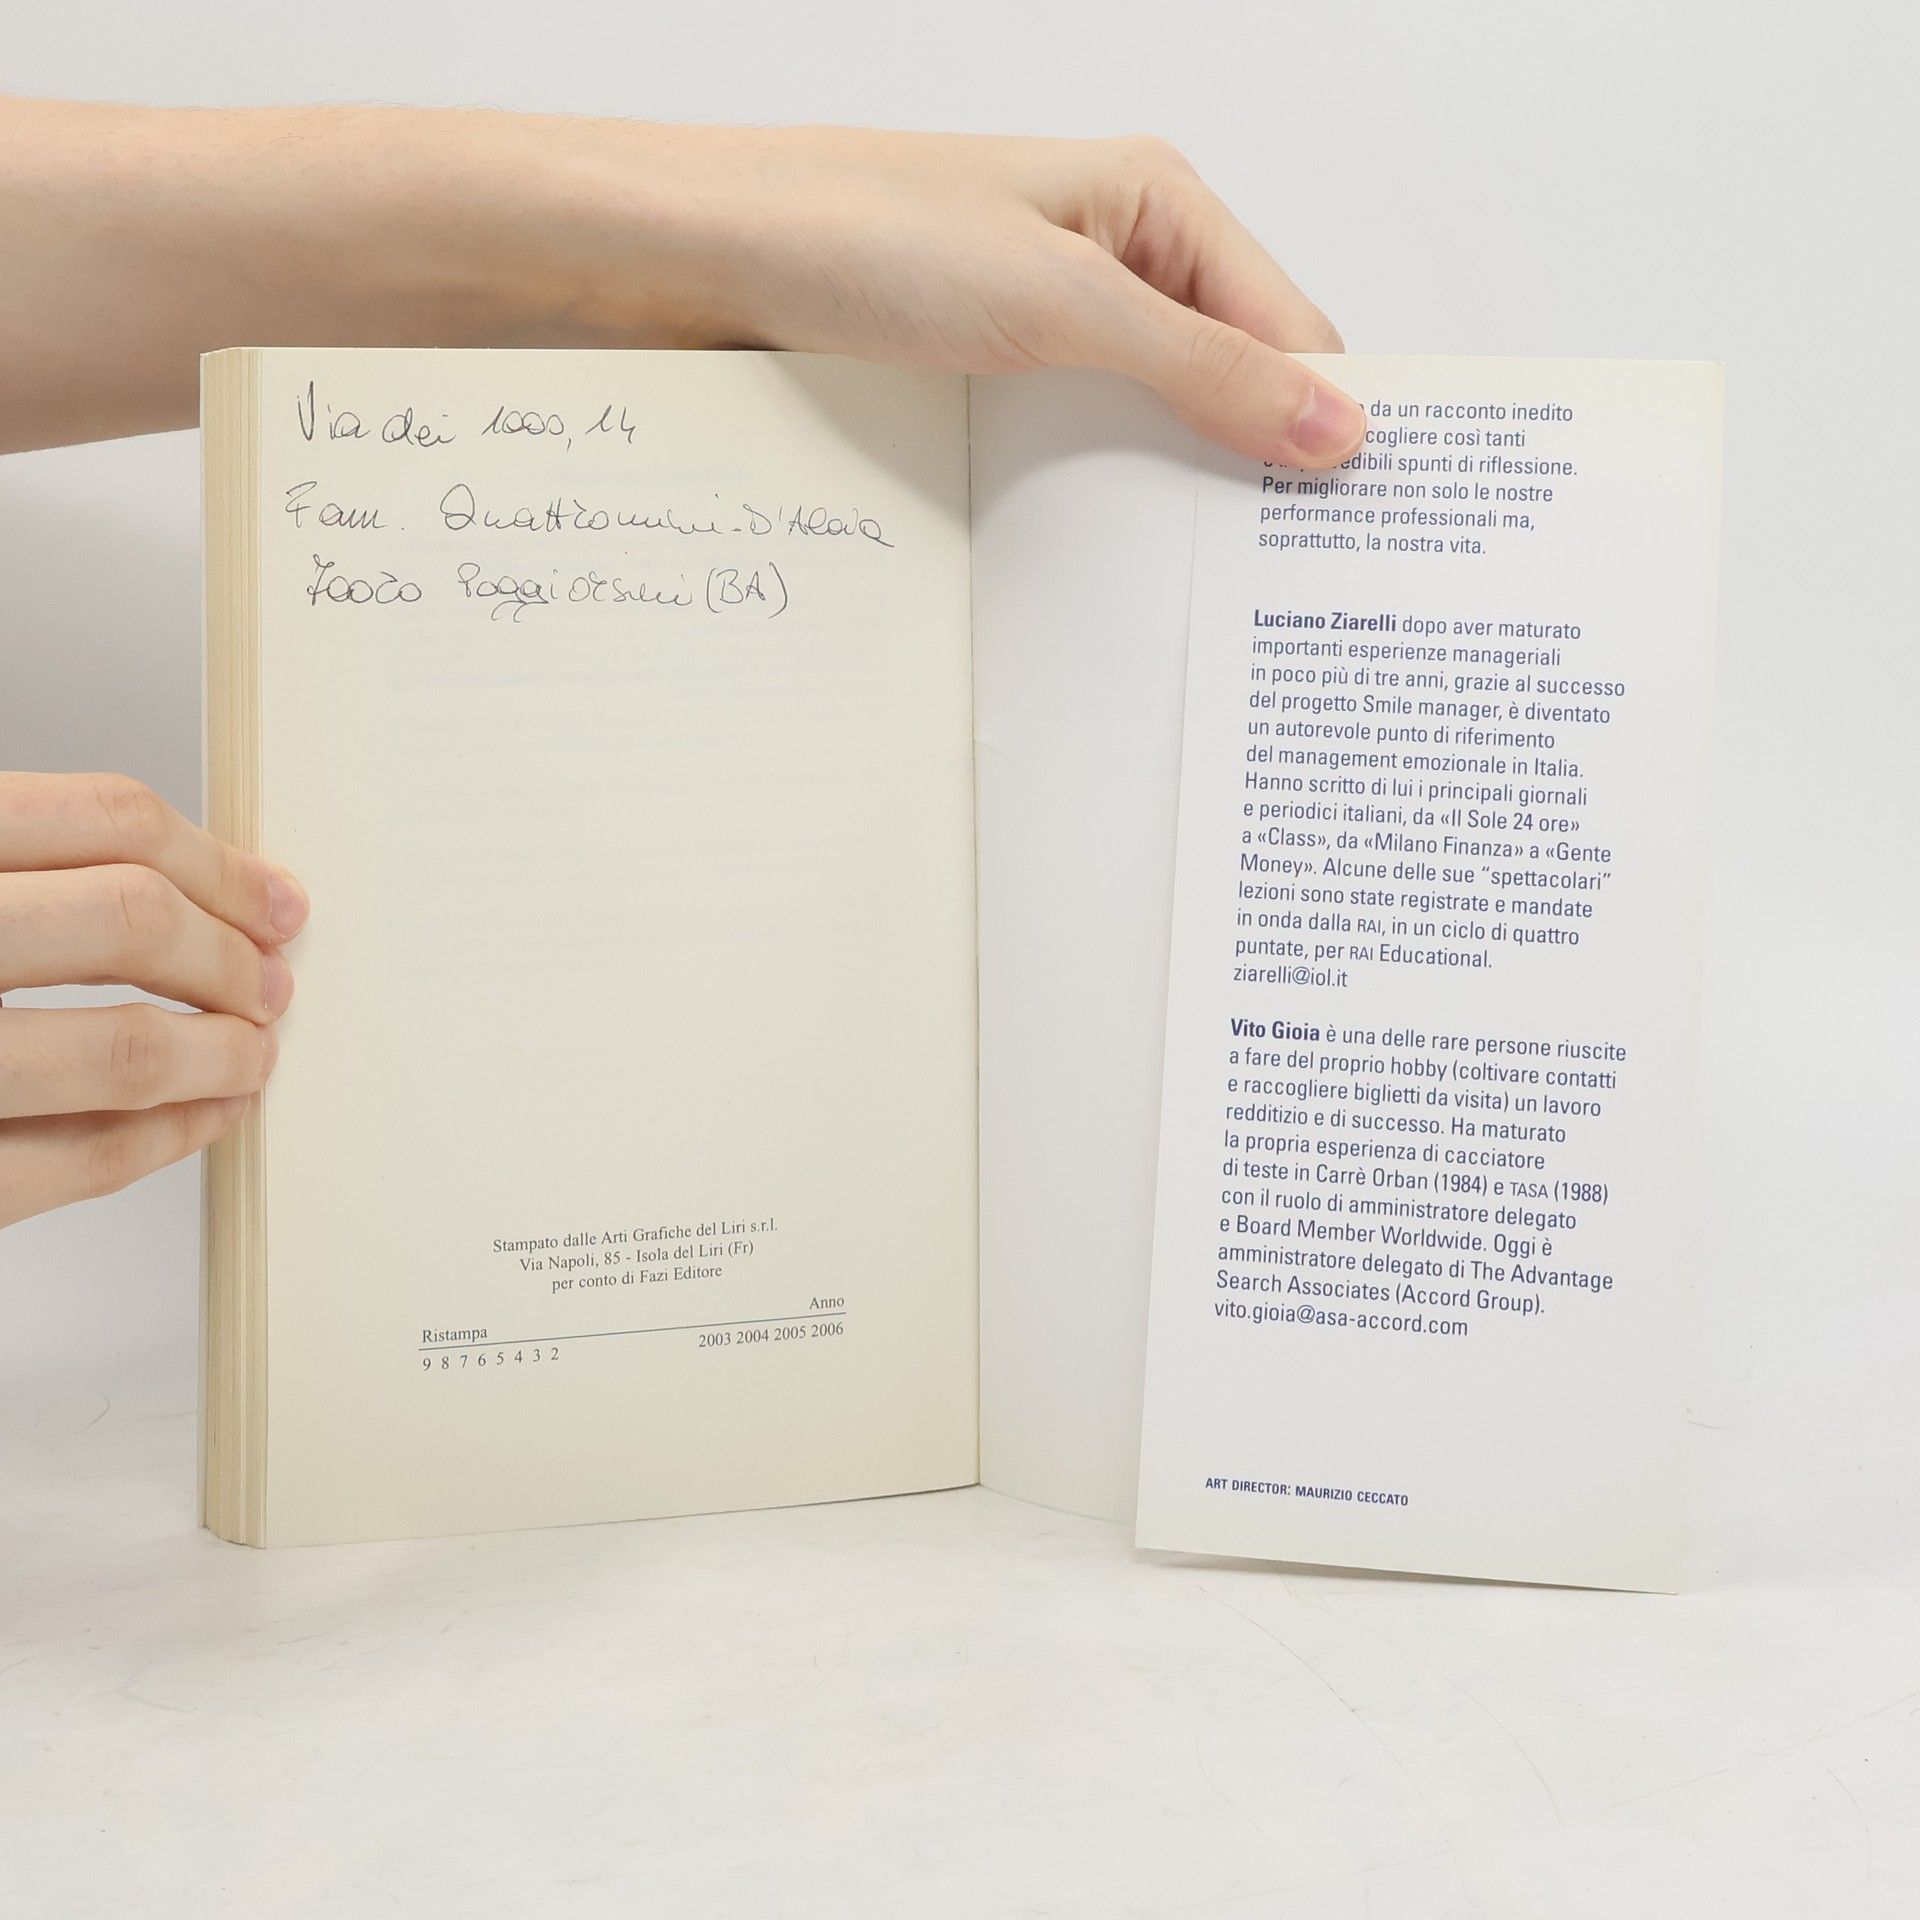 Via dei 1000, 14
Fam. Quattromini-D'Aloia
70020 Poggiorsini (BA)
Stampato dalle Arti Grafiche del Liri s.r.l.
Via Napoli, 85 - Isola del Liri (Fr)
per conto di Fazi Editore
Ristampa Anno
9 8 7 6 5 4 3 2 2003 2004 2005 2006
da un racconto inedito
cogliere così tanti
spunti di riflessione.
Per migliorare non solo le nostre
performance professionali ma,
soprattutto, la nostra vita.
Luciano Ziarelli dopo aver maturato
importanti esperienze manageriali
in poco più di tre anni, grazie al successo
del progetto Smile manager, è diventato
un autorevole punto di riferimento
del management emozionale in Italia.
Hanno scritto di lui i principali giornali
e periodici italiani, da «Il Sole 24 ore»
a «Class», da «Milano Finanza» a «Gente
Money». Alcune delle sue “spettacolari”
lezioni sono state registrate e mandate
in onda dalla RAI, in un ciclo di quattro
puntate, per RAI Educational.
ziarelli@iol.it
Vito Gioia è una delle rare persone riuscite
a fare del proprio hobby (coltivare contatti
e raccogliere biglietti da visita) un lavoro
redditizio e di successo. Ha maturato
la propria esperienza di cacciatore
di teste in Carrè Orban (1984) e TASA (1988)
con il ruolo di amministratore delegato
e Board Member Worldwide. Oggi è
amministratore delegato di The Advantage
Search Associates (Accord Group).
vito.gioia@asa-accord.com
ART DIRECTOR: MAURIZIO CECCATO